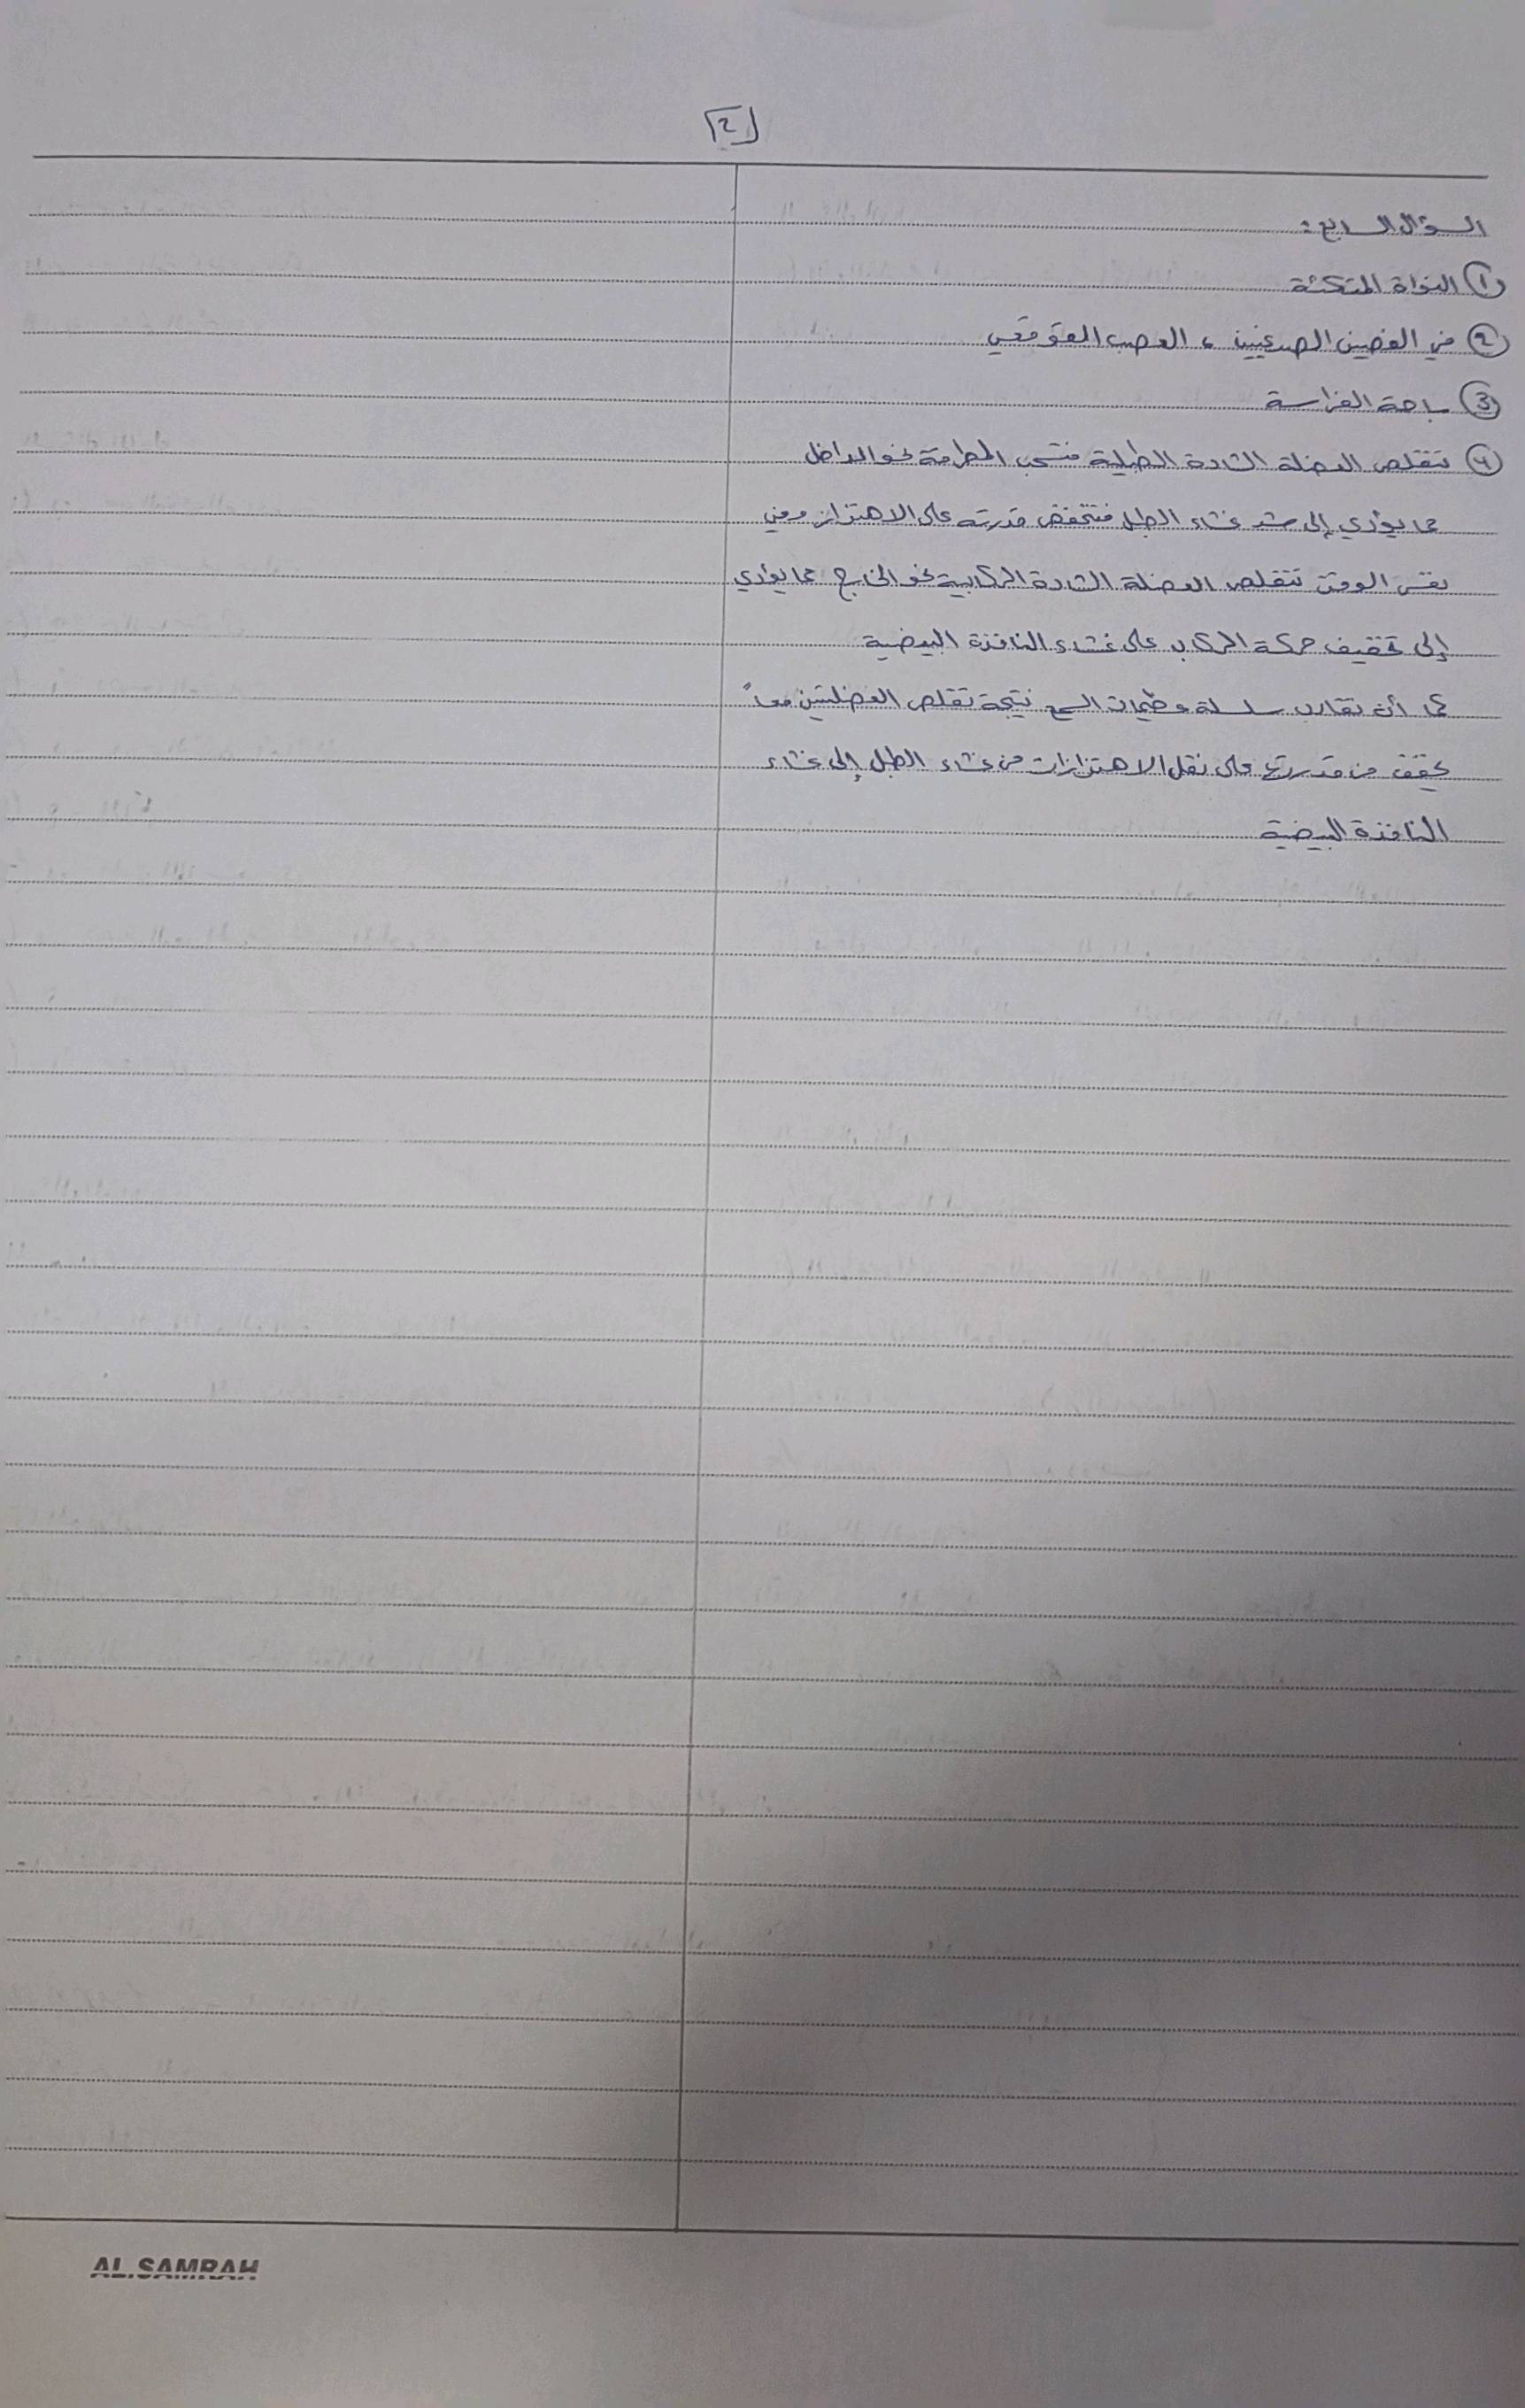 [2]
السؤال الرابع:
① النواة المتكئة
② في الفصين الصدغيين ، العصب القوقعي
③ باحة الفراسة
④ تتقلص العضلة الشادة الطبلية فتسحب المطرقة نحو الداخل
مما يؤدي إلى شد غشاء الطبل فتنخفض قدرته على الاهتزاز وفي
نفس الوقت تتقلص العضلة الشادة الركابية نحو الخارج مما يؤدي
إلى تخفيف حركة الركاب على غشاء النافذة البيضية
كما أن تقارب سلسلة عظيمات السمع نتيجة تقلص العضلتين معاً
يخفف من قدرتها على نقل الاهتزازات من غشاء الطبل إلى غشاء
النافذة البيضية
AL.SAMRAH